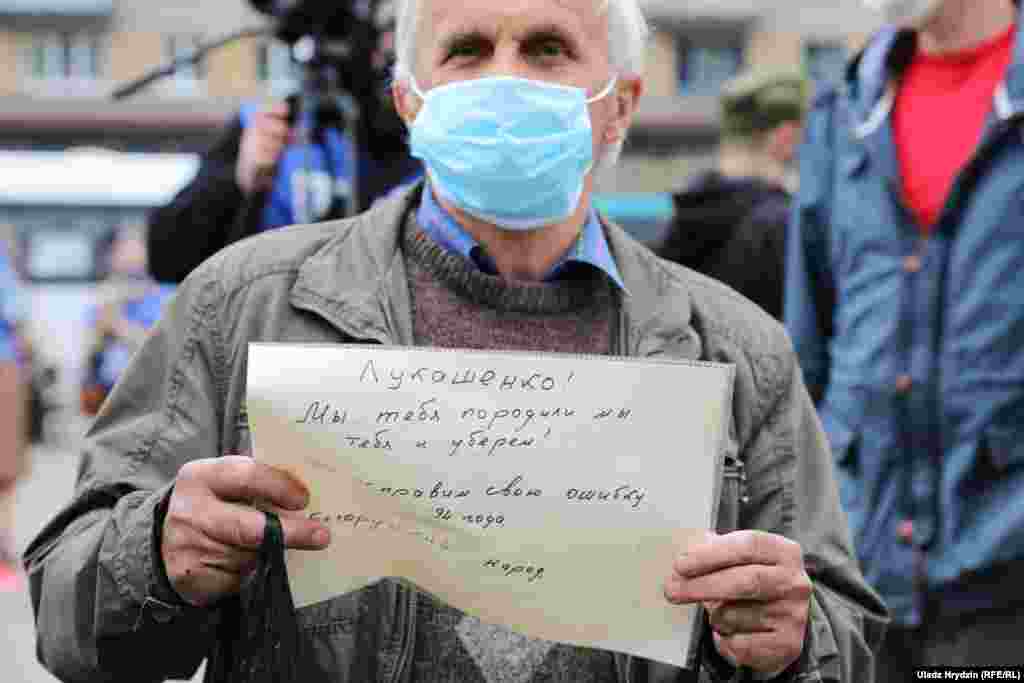 Лукашенко!
Мы тебя породили мы
тебя и уберём!
справим свою ошибку
94 года
народ
Uladz Hrydzin (RFE/RL)